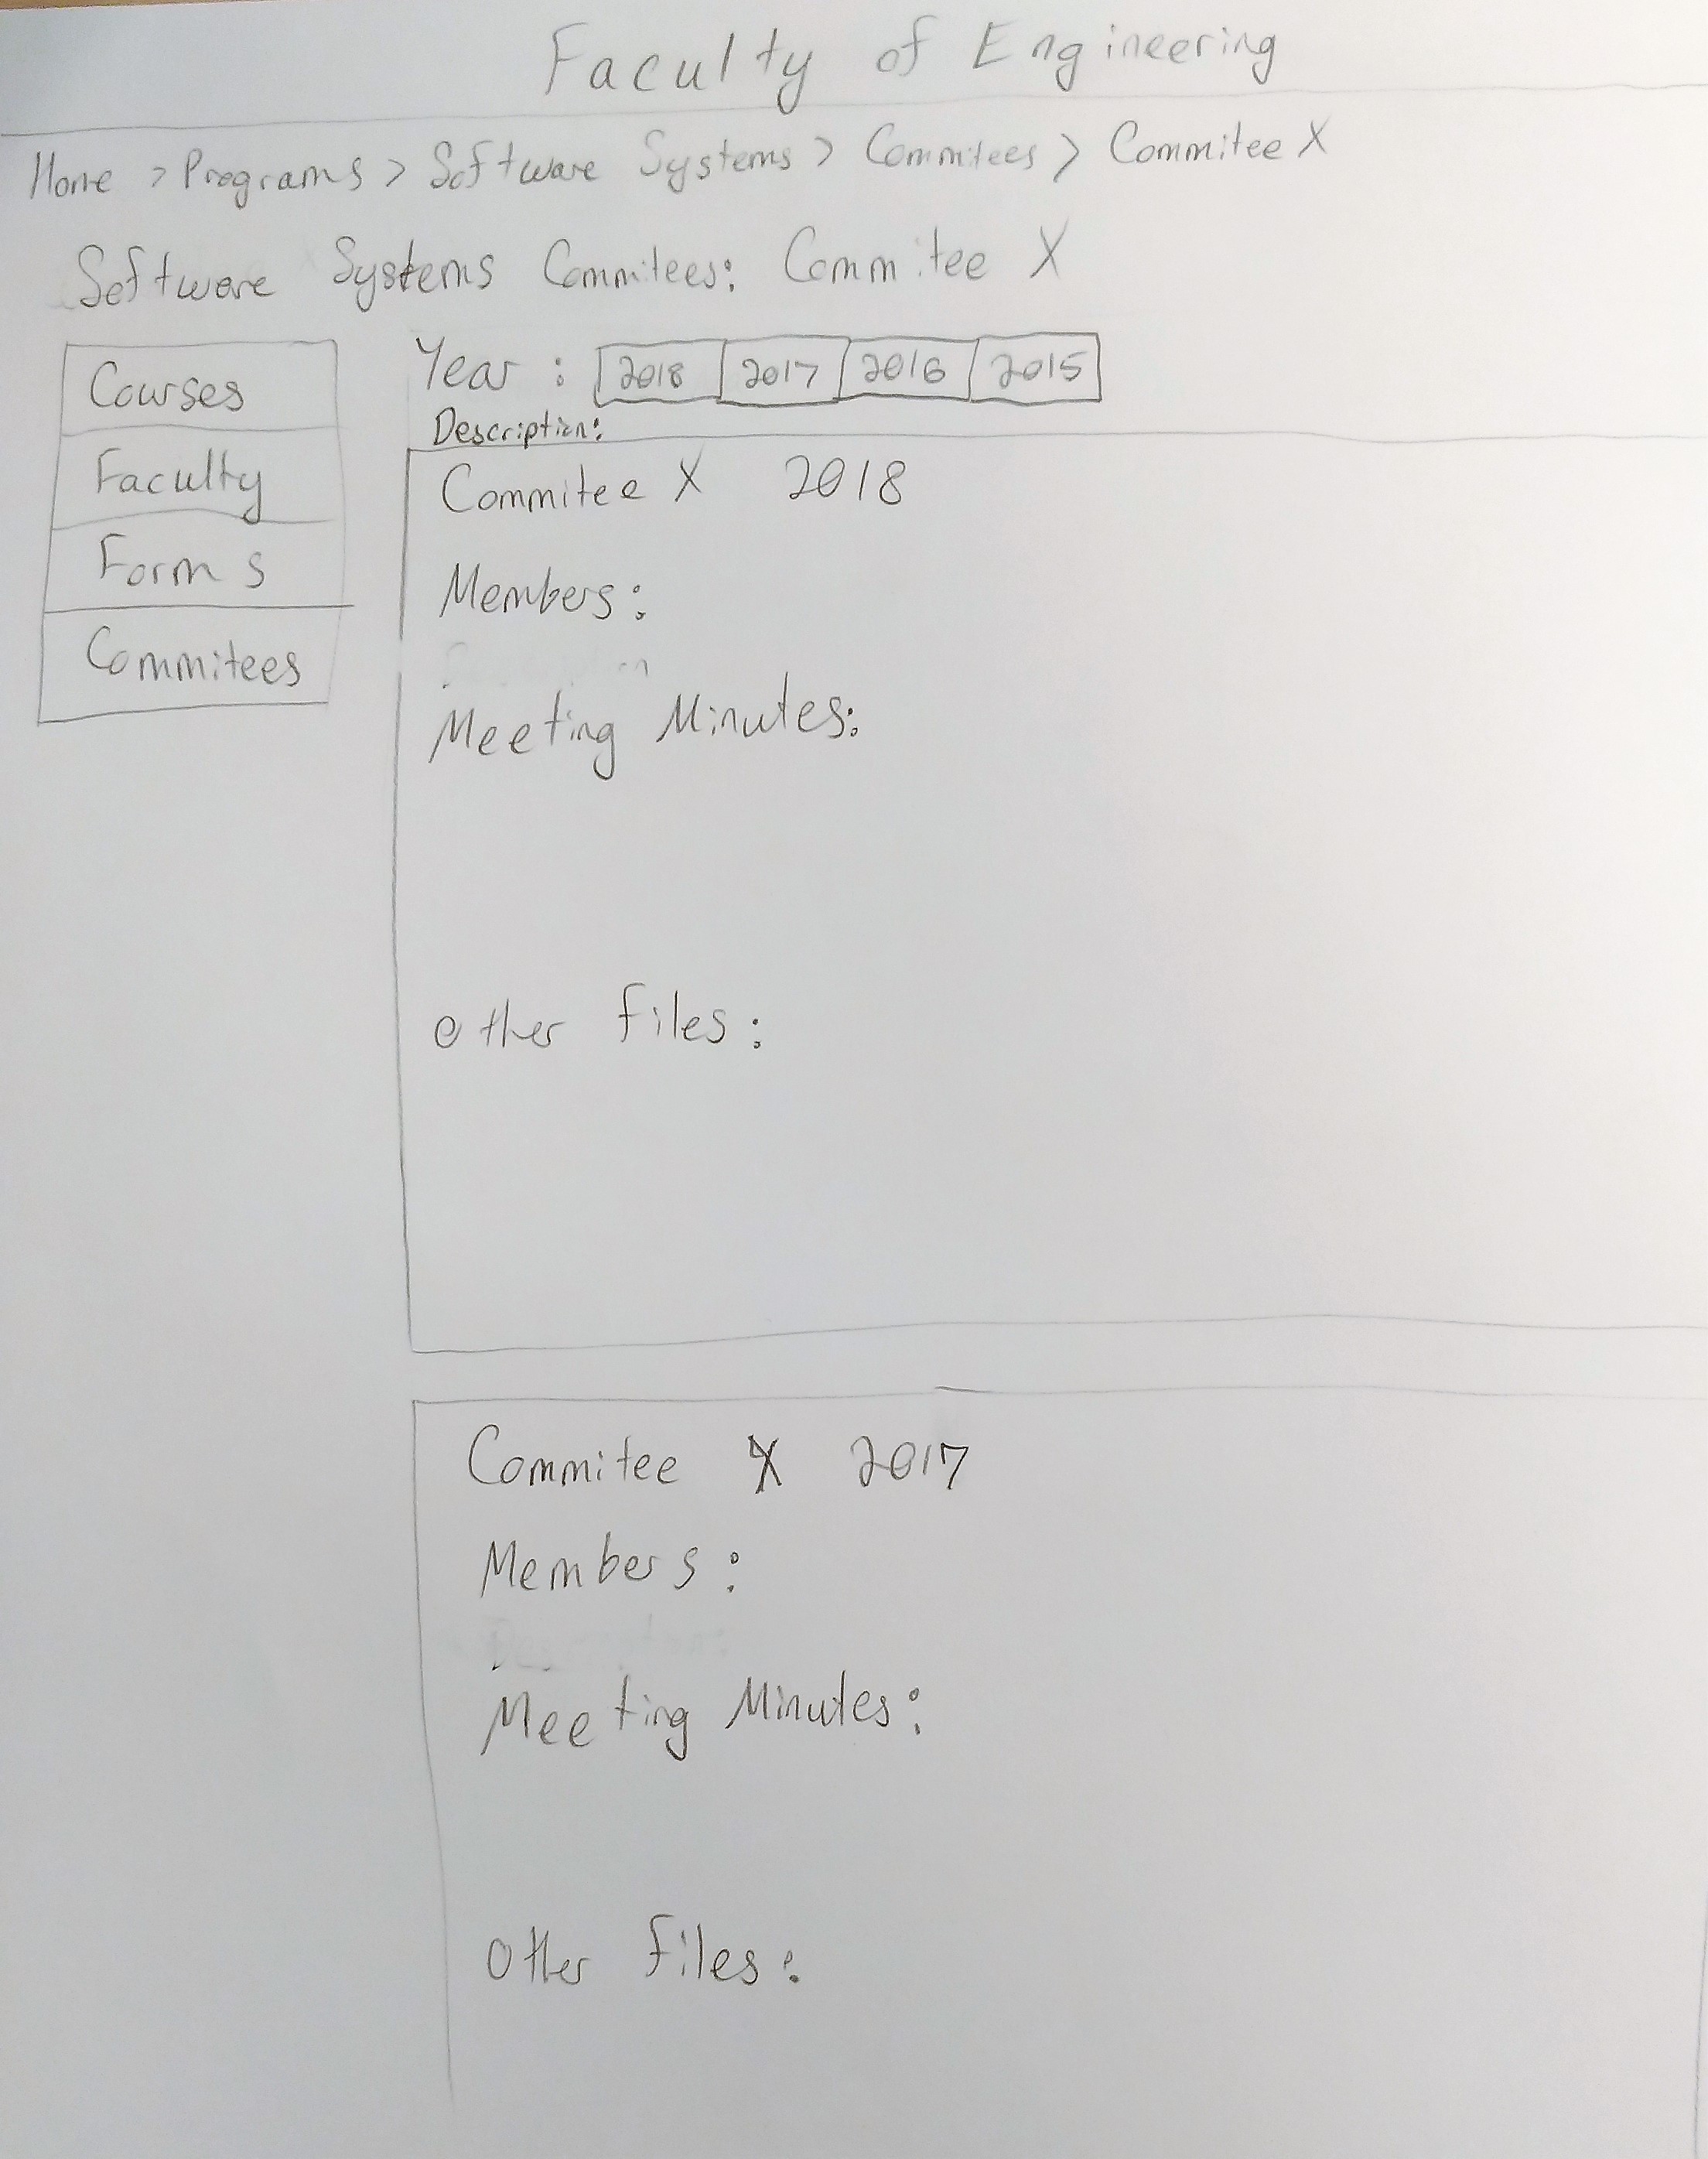 Faculty of Engineering
Home > Programs > Software Systems > Commitees > Commitee X
Software Systems Commitees: Commitee X
Courses
Faculty
Forms
Commitees
Year : 2018 2017 2016 2015
Description:
Commitee X 2018
Members:
Meeting Minutes:
Other files:
Commitee X 2017
Members:
Meeting Minutes:
Other files: